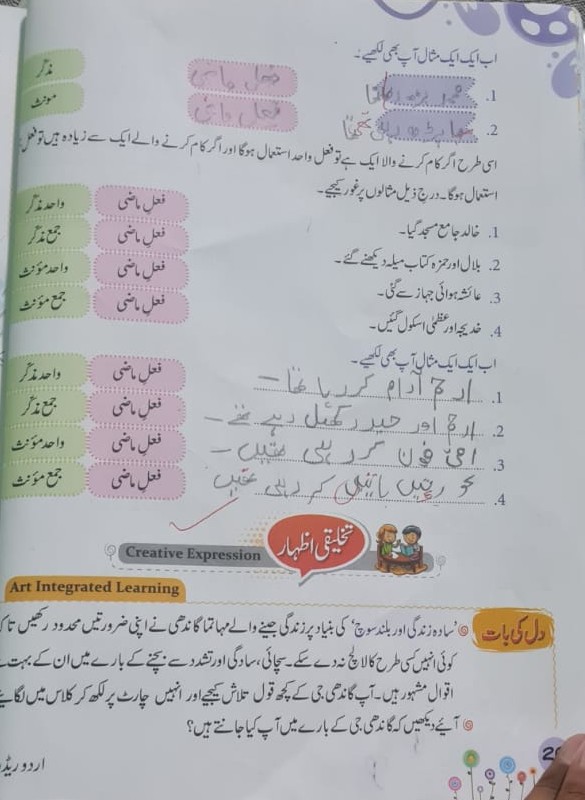 اب ایک ایک مثال آپ بھی لکھیے۔
1. پڑھ رہا تھا فعل ماضی مذکر
2. پڑھ رہی تھی فعل ماضی مونث
اسی طرح اگر کام کرنے والا ایک ہے تو فعل واحد استعمال ہوگا اور اگر کام کرنے والے ایک سے زیادہ ہیں تو فعل
استعمال ہوگا۔ درج ذیل مثالوں پر غور کیجیے۔
1. خالد جامع مسجد گیا۔ فعل ماضی واحد مذکر
2. بلال اور حمزہ کتاب میلہ دیکھنے گئے۔ فعل ماضی جمع مذکر
3. عائشہ ہوائی جہاز سے گئی۔ فعل ماضی واحد مؤنث
4. خدیجہ اور عظمیٰ اسکول گئیں۔ فعل ماضی جمع مؤنث
اب ایک ایک مثال آپ بھی لکھیے۔
1. ارحم آرام کر رہا تھا۔ فعل ماضی واحد مذکر
2. ارحم اور حیدر کھیل رہے تھے۔ فعل ماضی جمع مذکر
3. امی فون کر رہی تھیں۔ فعل ماضی واحد مؤنث
4. عورتیں باتیں کر رہی تھیں فعل ماضی جمع مؤنث
تخلیقی اظہار Creative Expression
Art Integrated Learning
دل کی بات
'سادہ زندگی اور بلند سوچ' کی بنیاد پر زندگی جینے والے مہاتما گاندھی نے اپنی ضرورتیں محدود رکھیں تاکہ
کوئی انہیں کسی طرح کا لالچ نہ دے سکے۔ سچائی، سادگی اور تشدد سے بچنے کے بارے میں ان کے بہت
اقوال مشہور ہیں۔ آپ گاندھی جی کے کچھ قول تلاش کیجیے اور انہیں چارٹ پر لکھ کر کلاس میں لگایئے
آیئے دیکھیں کہ گاندھی جی کے بارے میں آپ کیا جانتے ہیں؟
اردو ریڈر